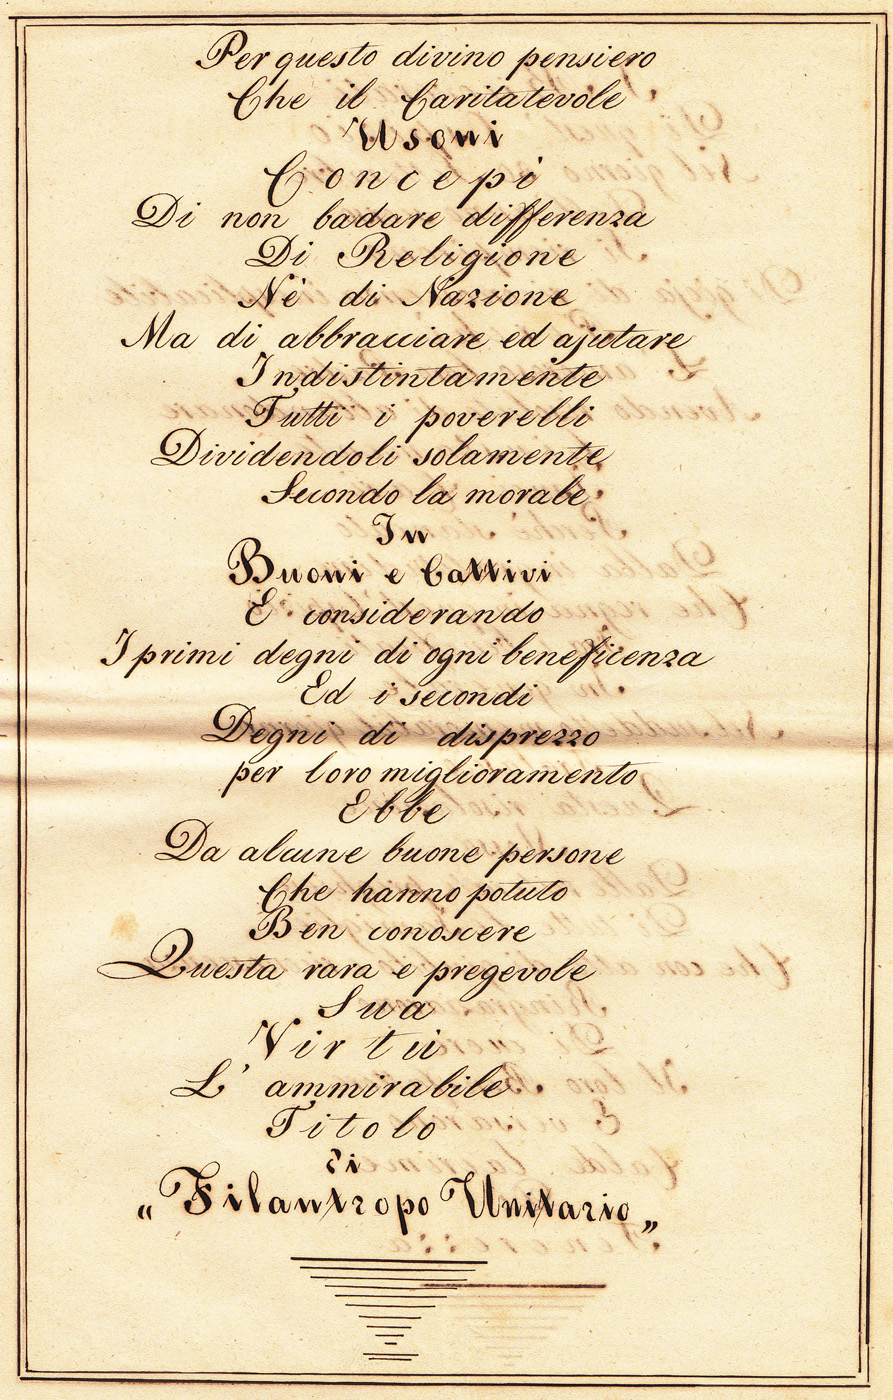 Per questo divino pensiero
Che il Caritatevole
Usoni
Concepì
Di non badare differenza
Di Religione
Nè di Nazione
Ma di abbracciare ed ajutare
Indistintamente
Tutti i poverelli
Dividendoli solamente
Secondo la morale
In
Buoni e Cattivi
E considerando
I primi degni di ogni beneficenza
Ed i secondi
Degni di disprezzo
per loro miglioramento
Ebbe
Da alcune buone persone
Che hanno potuto
Ben conoscere
Questa rara e pregevole
Sua
Virtù
L' ammirabile
Titolo
Di
„Filantropo Unitario„